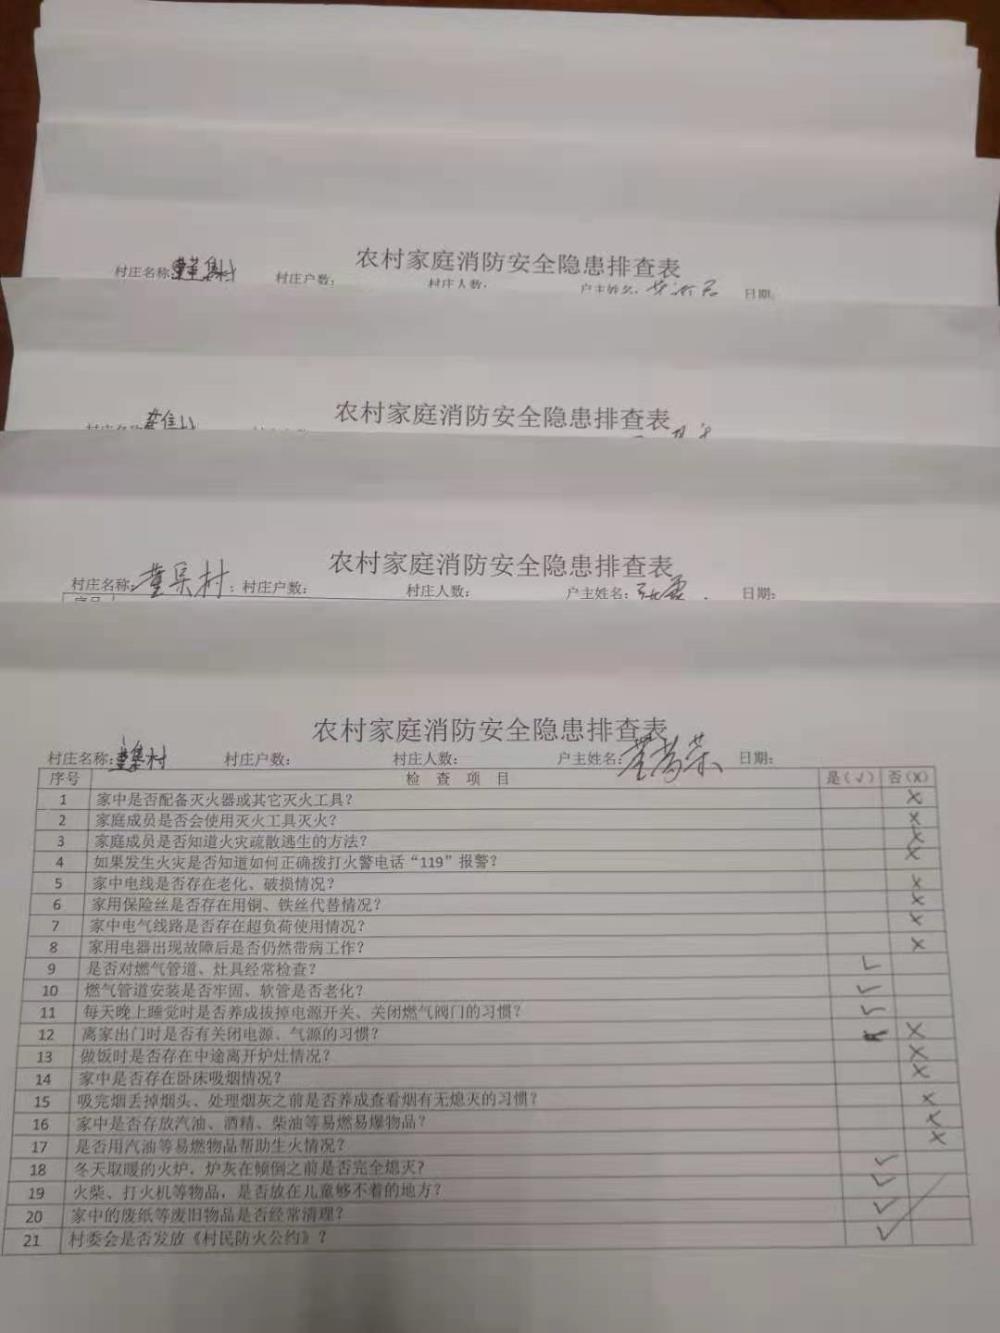 农村家庭消防安全隐患排查表
村庄名称: 董集村 村庄户数: 村庄人数: 户主姓名: 日期:
农村家庭消防安全隐患排查表
农村家庭消防安全隐患排查表
村庄名称: 董集村 : 村庄户数: 村庄人数: 户主姓名: 日期:
序号
农村家庭消防安全隐患排查表
村庄名称: 董集村 村庄户数: 村庄人数: 户主姓名: 日期:
序号 检 查 项 目 是(√) 否(X)
1 家中是否配备灭火器或其它灭火工具? ×
2 家庭成员是否会使用灭火工具灭火? ×
3 家庭成员是否知道火灾疏散逃生的方法? ×
4 如果发生火灾是否知道如何正确拨打火警电话“119”报警? ×
5 家中电线是否存在老化、破损情况? ×
6 家用保险丝是否存在用铜、铁丝代替情况? ×
7 家中电气线路是否存在超负荷使用情况? ×
8 家用电器出现故障后是否仍然带病工作? ×
9 是否对燃气管道、灶具经常检查? √
10 燃气管道安装是否牢固、软管是否老化? √
11 每天晚上睡觉时是否养成拔掉电源开关、关闭燃气阀门的习惯? √
12 离家出门时是否有关闭电源、气源的习惯? ×
13 做饭时是否存在中途离开炉灶情况? ×
14 家中是否存在卧床吸烟情况? ×
15 吸完烟丢掉烟头、处理烟灰之前是否养成查看烟有无熄灭的习惯? ×
16 家中是否存放汽油、酒精、柴油等易燃易爆物品? ×
17 是否用汽油等易燃物品帮助生火情况? ×
18 冬天取暖的火炉，炉灰在倾倒之前是否完全熄灭? √
19 火柴、打火机等物品，是否放在儿童够不着的地方? √
20 家中的废纸等废旧物品是否经常清理? √
21 村委会是否发放《村民防火公约》? √